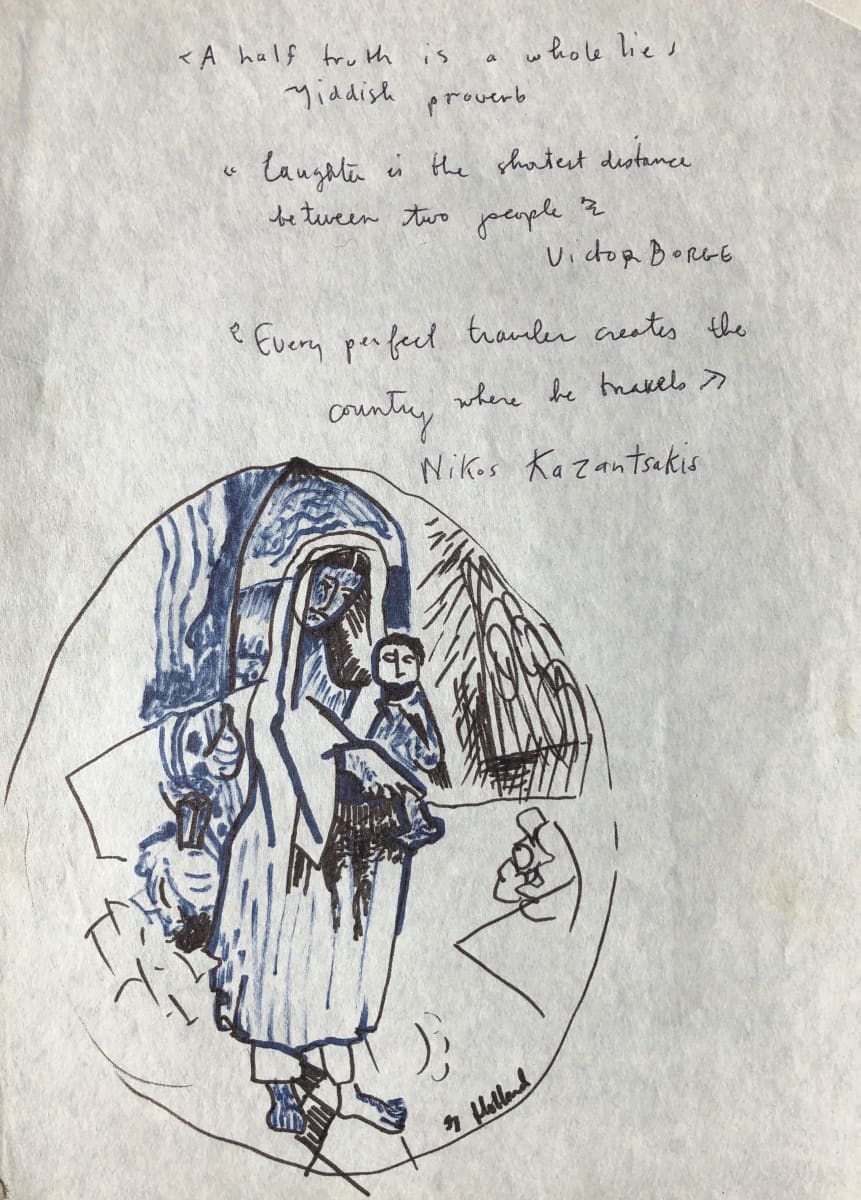 < A half truth is a whole lie >
Yiddish proverb
" Laughter is the shortest distance
between two people "
Victor BORGE
" Every perfect traveler creates the
country where he travels >>
Nikos Kazantsakis
Holland